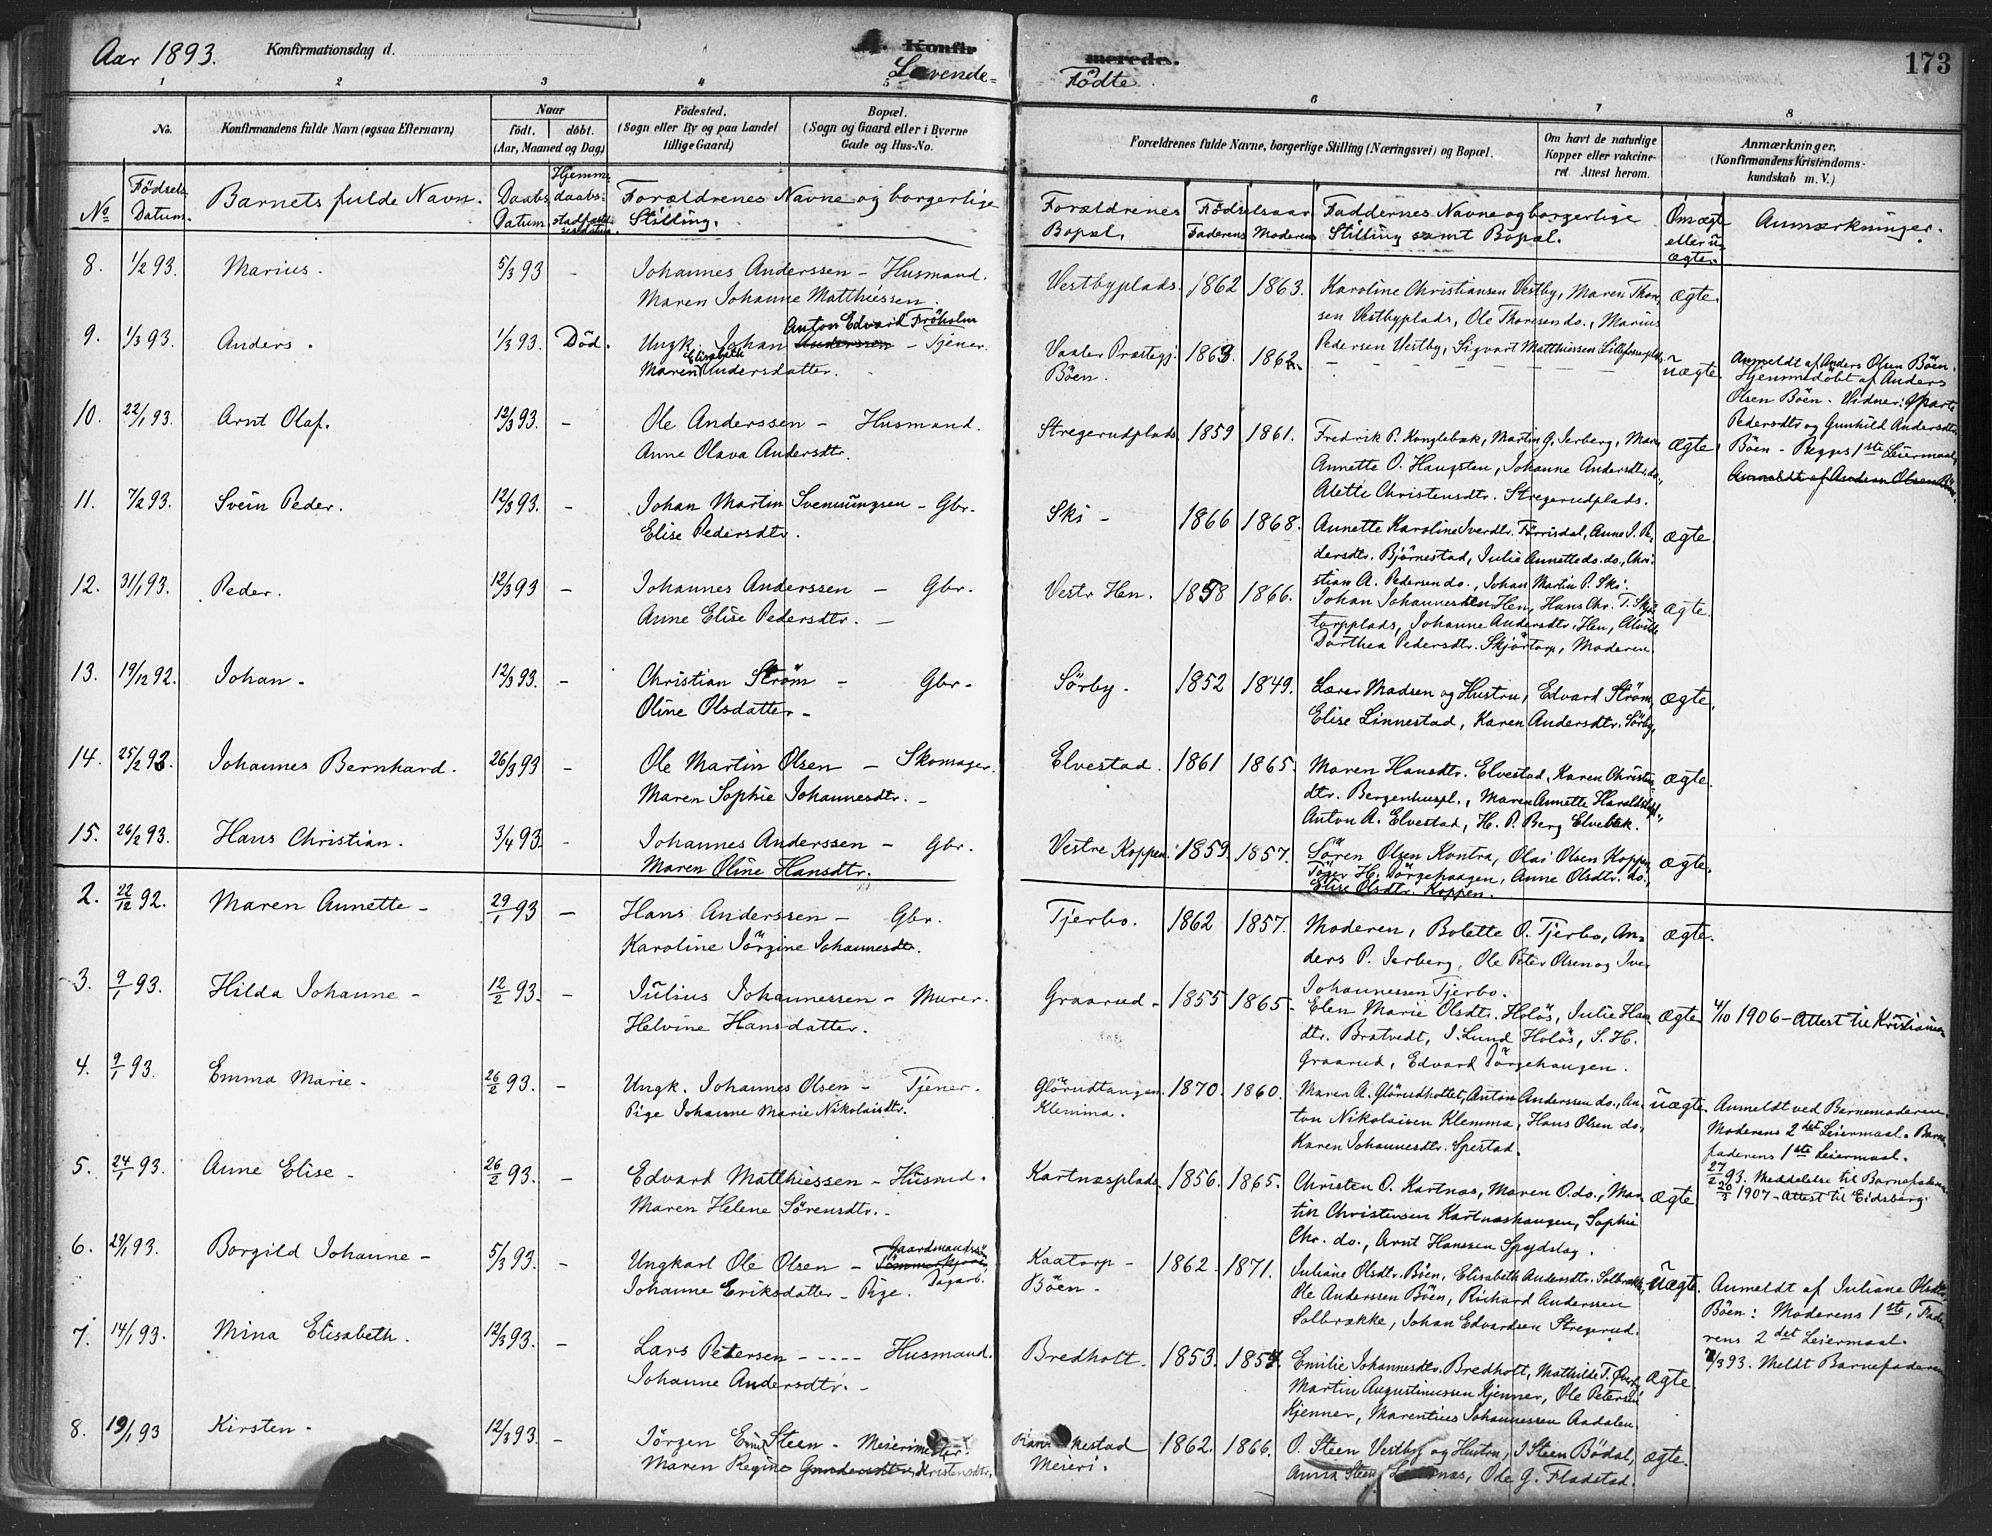 Aar 1893. Konfirmationsdag d. A. Konfirmerede. 173
Levende Födte
1 2 3 4 5 6 7 8
No. Konfirmandens fulde Navn (ogsaa Efternavn) Naar födt. döbt. (Aar, Maaned og Dag) Födested. (Sogn eller By og paa Landet tillige Gaard) Bopæl. (Sogn og Gaard eller i Byerne Gade og Hus-No.
Forældrenes fulde Navne, borgerlige Stilling (Næringsvei) og Bopæl. Om havt de naturlige Kopper eller vakcineret. Attest herom. Anmærkninger, (Konfirmandens Kristendomskundskab m. V.)
No Födsels Datum. Barnets fulde Navn. Daabs Datum. Hjemmedaabs- Forældrenes Navne og borgerlige Stilling.
Forældrenes Bopæl. Födselsaar Faderens Moderens Faddernes Navne og borgerlige Stilling samt Bopæl. Om ægte eller uægte. Anmærkninger.
8. 1/2 93. Marius. 5/3 93 - Johannes Anderssen - Husmand.
Maren Johanne Matthiessen.
Vestbyplads. 1862 1863. Karoline Christiansen Vestby, Maren Thoresen Vestbyplads, Ole Thoresen do., Marius
Pedersen Vestby, Sigvart Matthiessen
ægte.
9. 1/3 93. Anders. 1/3 93. Död. Ungk. Johan Anderssen Anton Edvard Fröholm - Tjener.
Maren Elisabeth Andersdatter.
Vaaler Præstegj. Böen. 1863. 1862. uægte. Anmeldt af Anders Olsen Böen.
Hjemmedöbt af Anders
Olsen Böen. Vidner:
Pedersdtr og Gunhild Andersdtr.
Böen - Begges 1ste Leiermaal.
Anmeldt af Anders Olsen Böen.
10. 22/1 93. Arnt Olaf. 12/3 93 - Ole Anderssen - Husmand.
Anne Olava Andersdtr.
Stregerudplads 1859 1861. Fredrik P. Konglebæk, Martin G. Jerberg,
Annette O. Haugsten, Johanne Andersdtr. do.,
Alette Christensdtr. Stregerudplads.
ægte
11. 7/2 93. Svein Peder. 12/3 93. - Johan Martin Svenningsen - Gbr.
Elise Pedersdtr.
Ski - 1866 1868. Annette Karoline Iverdtr. Förrisdal, Anne I. Pedersdtr. Björnestad, Julie Annette do. do., Christian A. Pedersen do., Johan Martin P. Ski.
ægte
12. 31/1 93. Peder. 12/3 93 - Johannes Anderssen - Gbr.
Anne Elise Pedersdtr. -
Vestr Hen. 1858 1866. Johan Johannessen Hen, Hans Chr. T. Skjörtorpplads, Johanne Andersdtr. Hen,
Dorthea Pedersdtr. Skjörtorp, Moderen.
ægte
13. 19/12 92. Johan. 12/3 93. - Christian Ström - Gbr.
Oline Olsdatter -
Sörby. 1852 1849. Lærer Madsen og Hustru, Edvard Ström,
Elise Linnestad, Karen Andersdtr. Sörby,
ægte.
14. 25/2 93. Johannes Bernhard. 26/3 93 - Ole Martin Olsen - Skomager.
Maren Sophie Johannesdtr. -
Elvestad. 1861 1865. Maren Hansdtr. Elvestad, Karen Christiansdtr. Bergenhuspl., Maren Annette
Anton A. Elvestad, H. P. Berg Elvebak.
ægte.
15. 26/2 93. Hans Christian. 3/4 93. - Johannes Anderssen - Gbr.
Maren Oline Hansdtr.
Vestre Koppen. 1859. 1857. Sören Olsen Kontra, Olai Olsen Koppen,
H. Törgehaugen, Anne Olsdtr. do.,
Elise Olsdtr. Koppen.
ægte.
2. 22/12 92. Maren Annette - 29/1 93 - Hans Anderssen - Gbr.
Karoline Jörgine Johannesdtr.
Tjerbo. 1862 1857. Moderen, Bolette O. Tjerbo, Anders P. Jerberg, Ole Peter Olsen og Iver
Johannessen Tjerbo.
ægte.
3. 9/1 93. Hilda Johanne - 12/2 93. - Julius Johannessen - Murer.
Helvine Hansdatter.
Graarud - 1855 1865. Elen Marie Olsdtr. Holös, Julie Hansdtr. Bratvedt, I. Lund Holös, S. H.
Graarud, Edvard Törgehaugen.
ægte 4/10 1906 - Attest til Kristiania
4. 9/1 93. Emma Marie - 26/2 93. - Ungk. Johannes Olsen - Tjener.
Pige Johanne Marie Nikolaisdtr.
Glörudtangen 1870. 1860.
Klemma.
Maren A. Glörudholtet, Anton Anderssen do., Anton Nikolaisen Klemma, Hans Olsen do.,
Karen Johannesdtr. Spestad.
uægte. Anmeldt ved Barnemoderen.
Moderens 2det Leiermaal. Barnefaderens 1ste Leiermaal.
27/2 93. Meddelelse til Barnefaderen
5. 24/1 93. Anne Elise - 26/2 93. - Edvard Matthiessen - Husmd.
Maren Helene Sörensdtr. -
Kartnæsplads 1856. 1865. Christen O. Kartnæs, Maren O. do., Martin Christensen Kartnæshaugen, Sophie
Chr. do., Arnt Hanssen Spydslag.
ægte 20/3 1907 - Attest til Eidsberg.
6. 29/1 93. Borgild Johanne - 5/3 93. - Ungkarl Ole Olsen - Gaardmandssön Dagarb.
Johanne Eriksdatter - Pige.
Kaatorp - Böen - 1862. 1871. Juliane Olsdtr. Böen, Elisabeth Andersdtr. Solbrække,
Ole Anderssen Böen, Richard Anderssen
Solbrække, Johan Edvardsen Stregerud.
uægte. Anmeldt af Juliane Olsdtr.
Böen: Moderens 1ste, Faderens 2det Leiermaal.
7/3 93. Meldt Barnefaderen
7. 14/1 93. Mina Elisabeth. 12/3 93. - Lars Petersen - - - - - Husmand.
Johanne Andersdtr. -
Bredholt. 1853. 1857. Emilie Johannesdtr. Bredholt, Mathilde T.
Martin Augustinussen Kjenner, Ole Petersen
Kjenner, Marentius Johannessen Aadalen.
ægte.
8. 19/1 93 Kirsten - 12/3 93. - Jörgen Emil Steen - Meierimester.
Maren Regine Gundersdtr. Kristensdtr.
Meieri. 1862. 1866. O. Steen Vestby og Hustru, J Steen Bödal,
Anna Steen Ode G. Fladstad.
ægte.